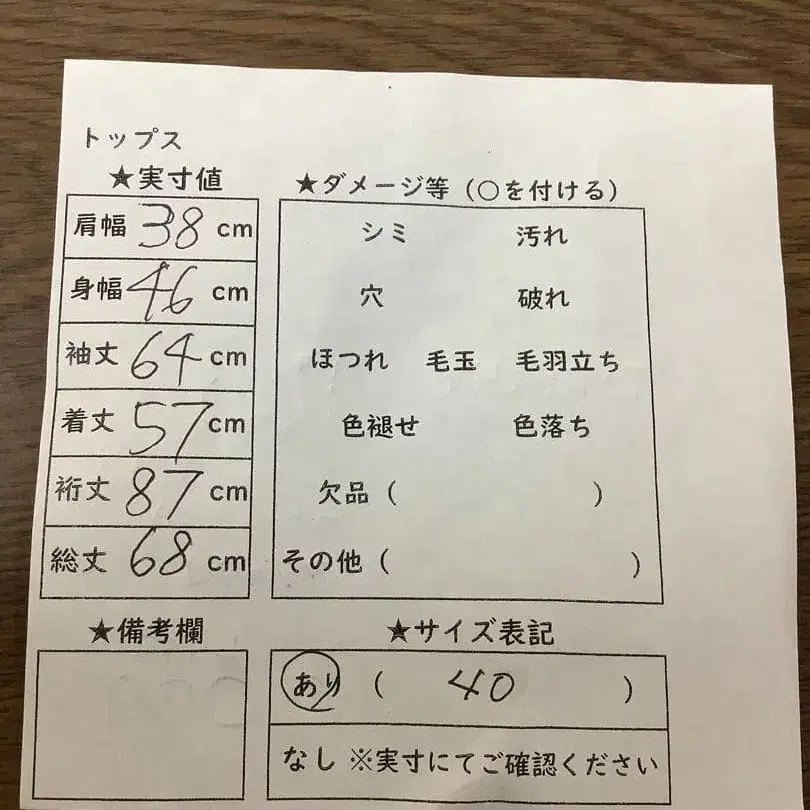 トップス
★実寸値
肩幅 38 cm
身幅 46 cm
袖丈 64 cm
着丈 57 cm
裄丈 87 cm
総丈 68 cm
★ダメージ等（○を付ける）
シミ 汚れ
穴 破れ
ほつれ 毛玉 毛羽立ち
色褪せ 色落ち
欠品（ ）
その他（ ）
★備考欄
★サイズ表記
あり （ 40 ）
なし ※実寸にてご確認ください